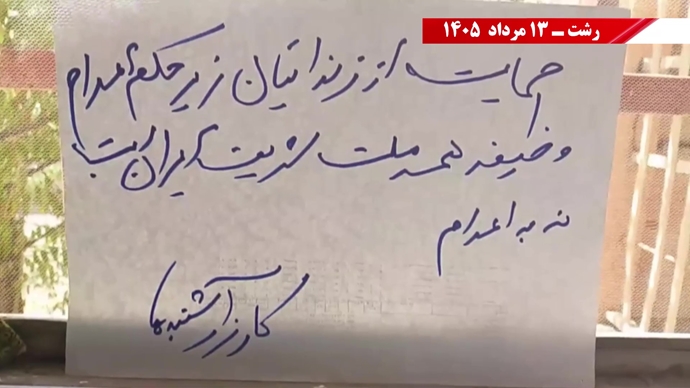 رشت ــ ۱۳ مرداد ۱۴۰۵
حمایت از زندانیان زیر حکم اعدام
وظیفه همه ملت شریف ایران است
نه به اعدام
کارزار سه‌شنبه‌ها